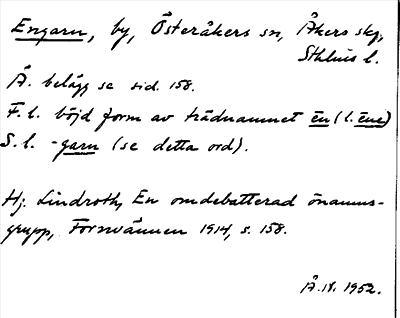 Engarn, by, Österåkers sn, Åkers skg,
Sthlms l.
Ä. belägg se sid. 158.
F.l. böjd form av trädnamnet en (l. ene)
S.l. -garn (se detta ord).
Hj. Lindroth, En omdebatterad önamns-
grupp, Fornvännen 1914, s. 158.
Å.W. 1952.